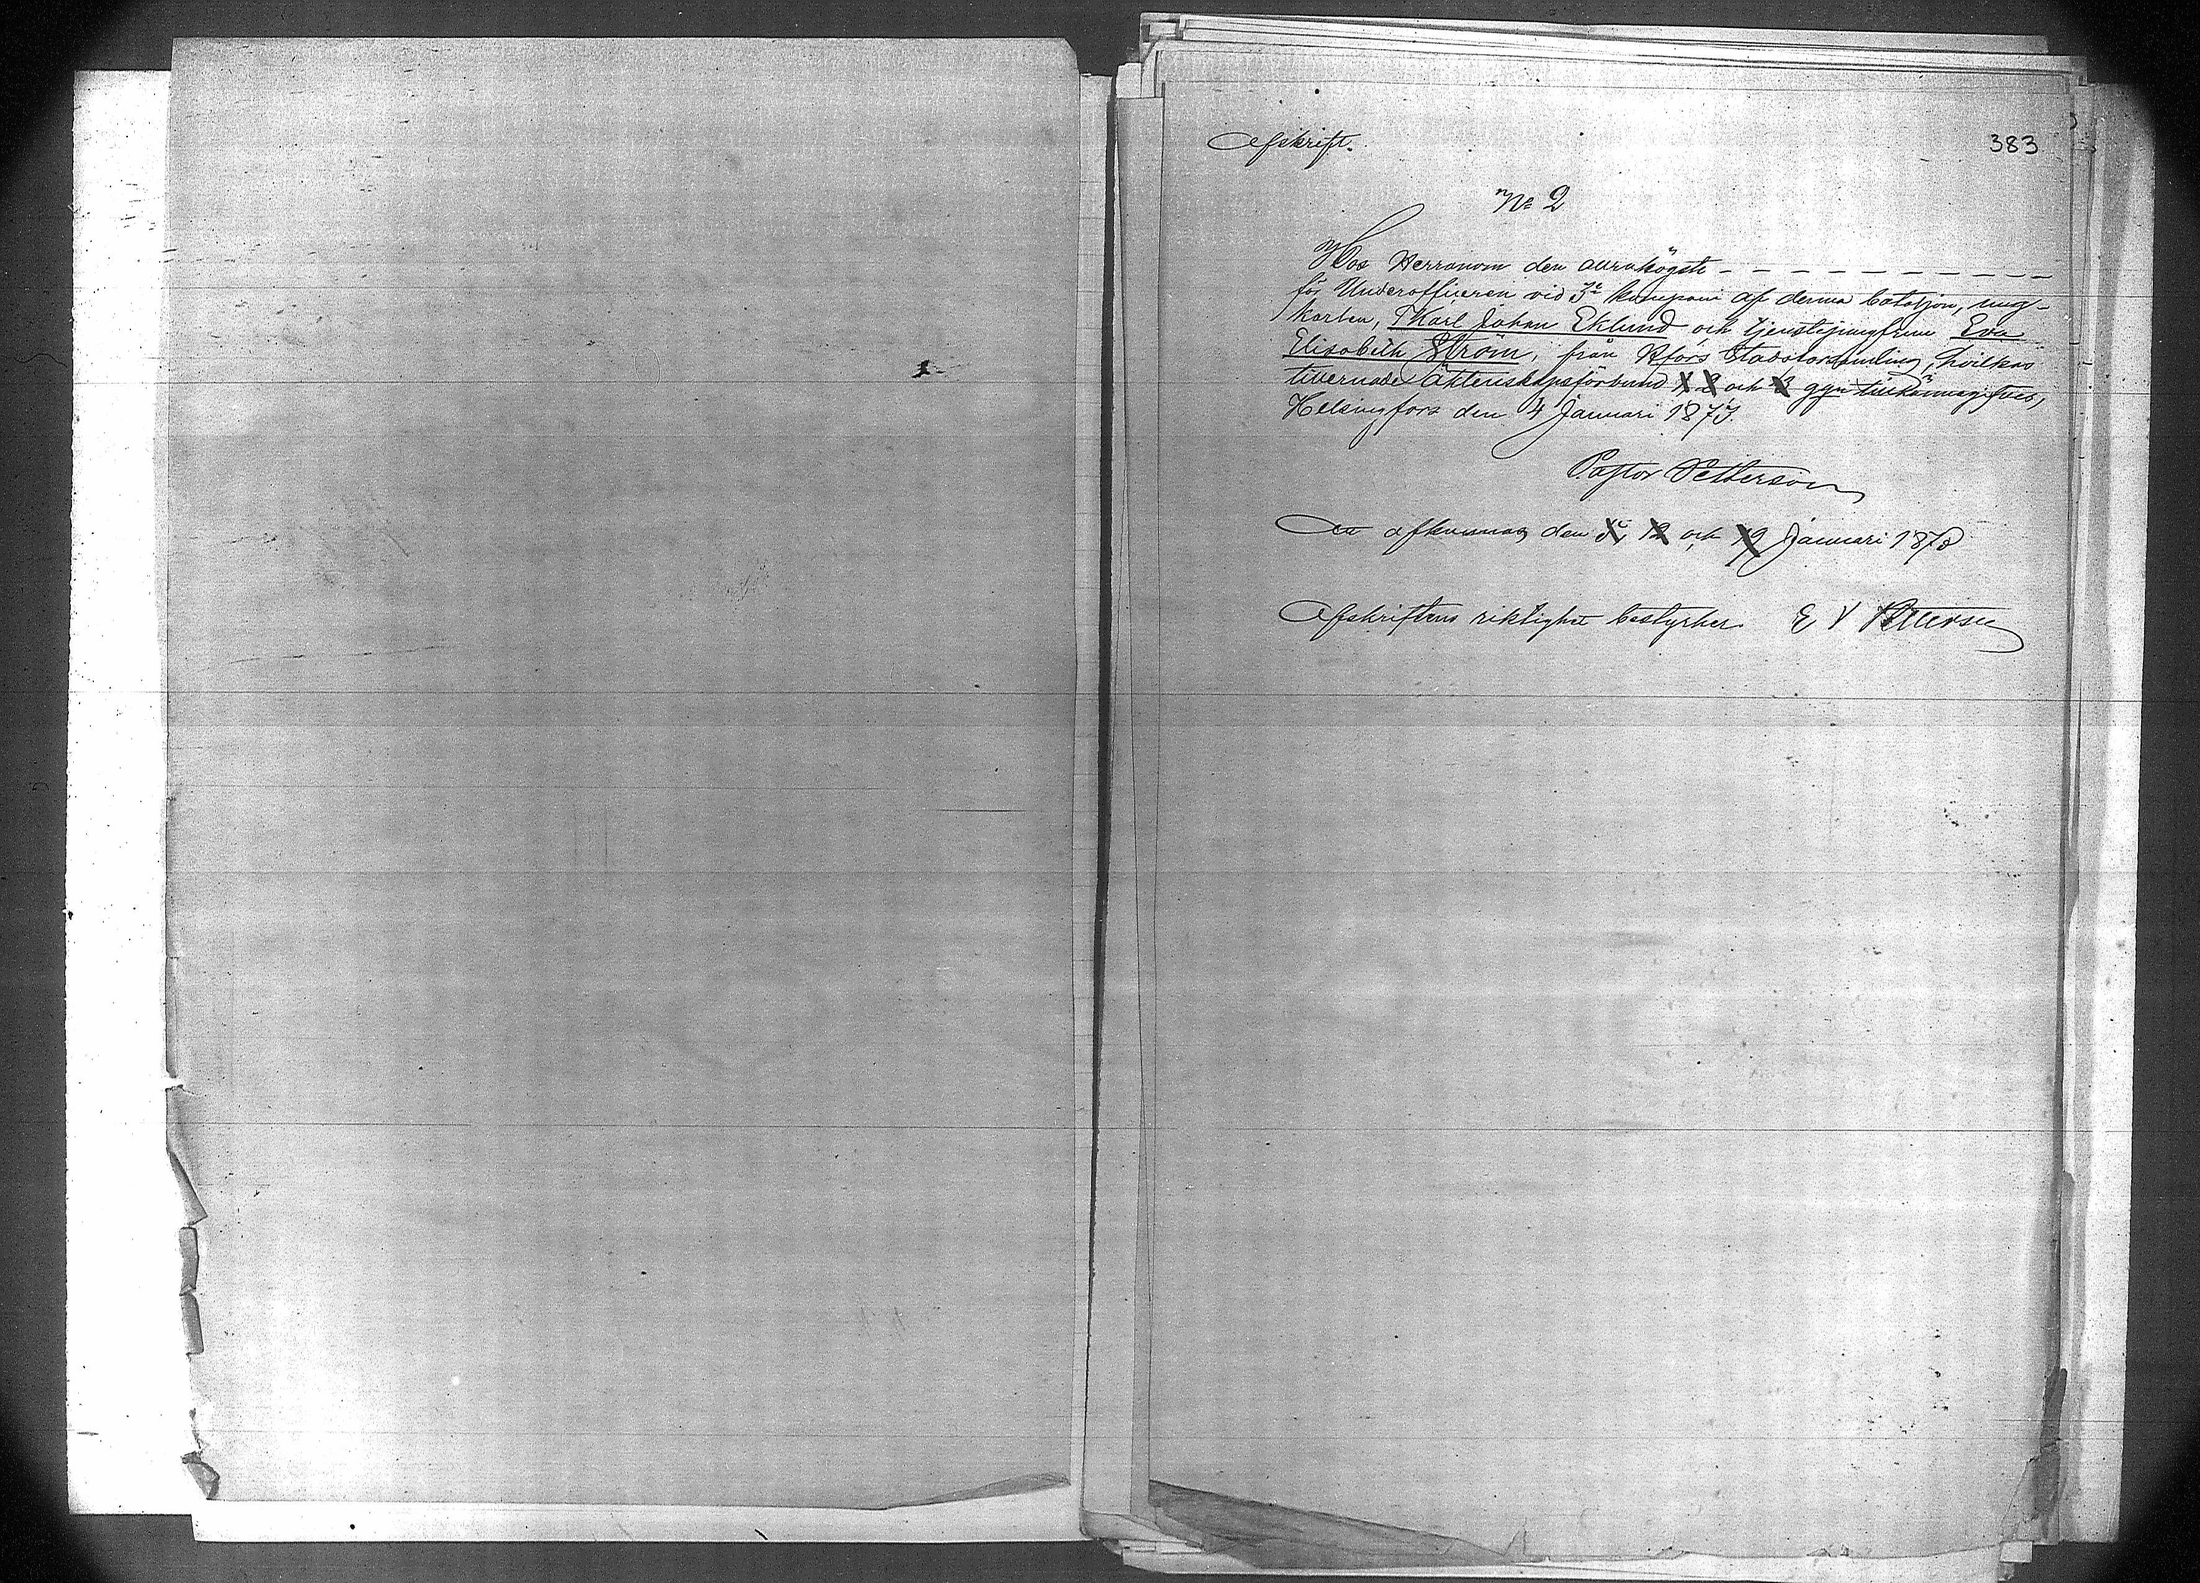 Afskrift.
383
No 2
Hos Herranom den allrahögste - - - - - - - - - -
för Underofficeren vid 3e kompani af denna bataljon, ung-
karlen, Karl Johan Eklund och tjenstejungfrun Eva
Elisabeth Ström, från Hfors Stadsförsamling, hvilkas
äktenskapsförbund 1 2 och 3 ggn tillkännagifves,
Helsingfors den 4 Januari 1873.
Pastor Petterson
afkunnas den 5, 12 och 19 Januari 1873
Afskriftens riktighet bestyrker E V Petterson